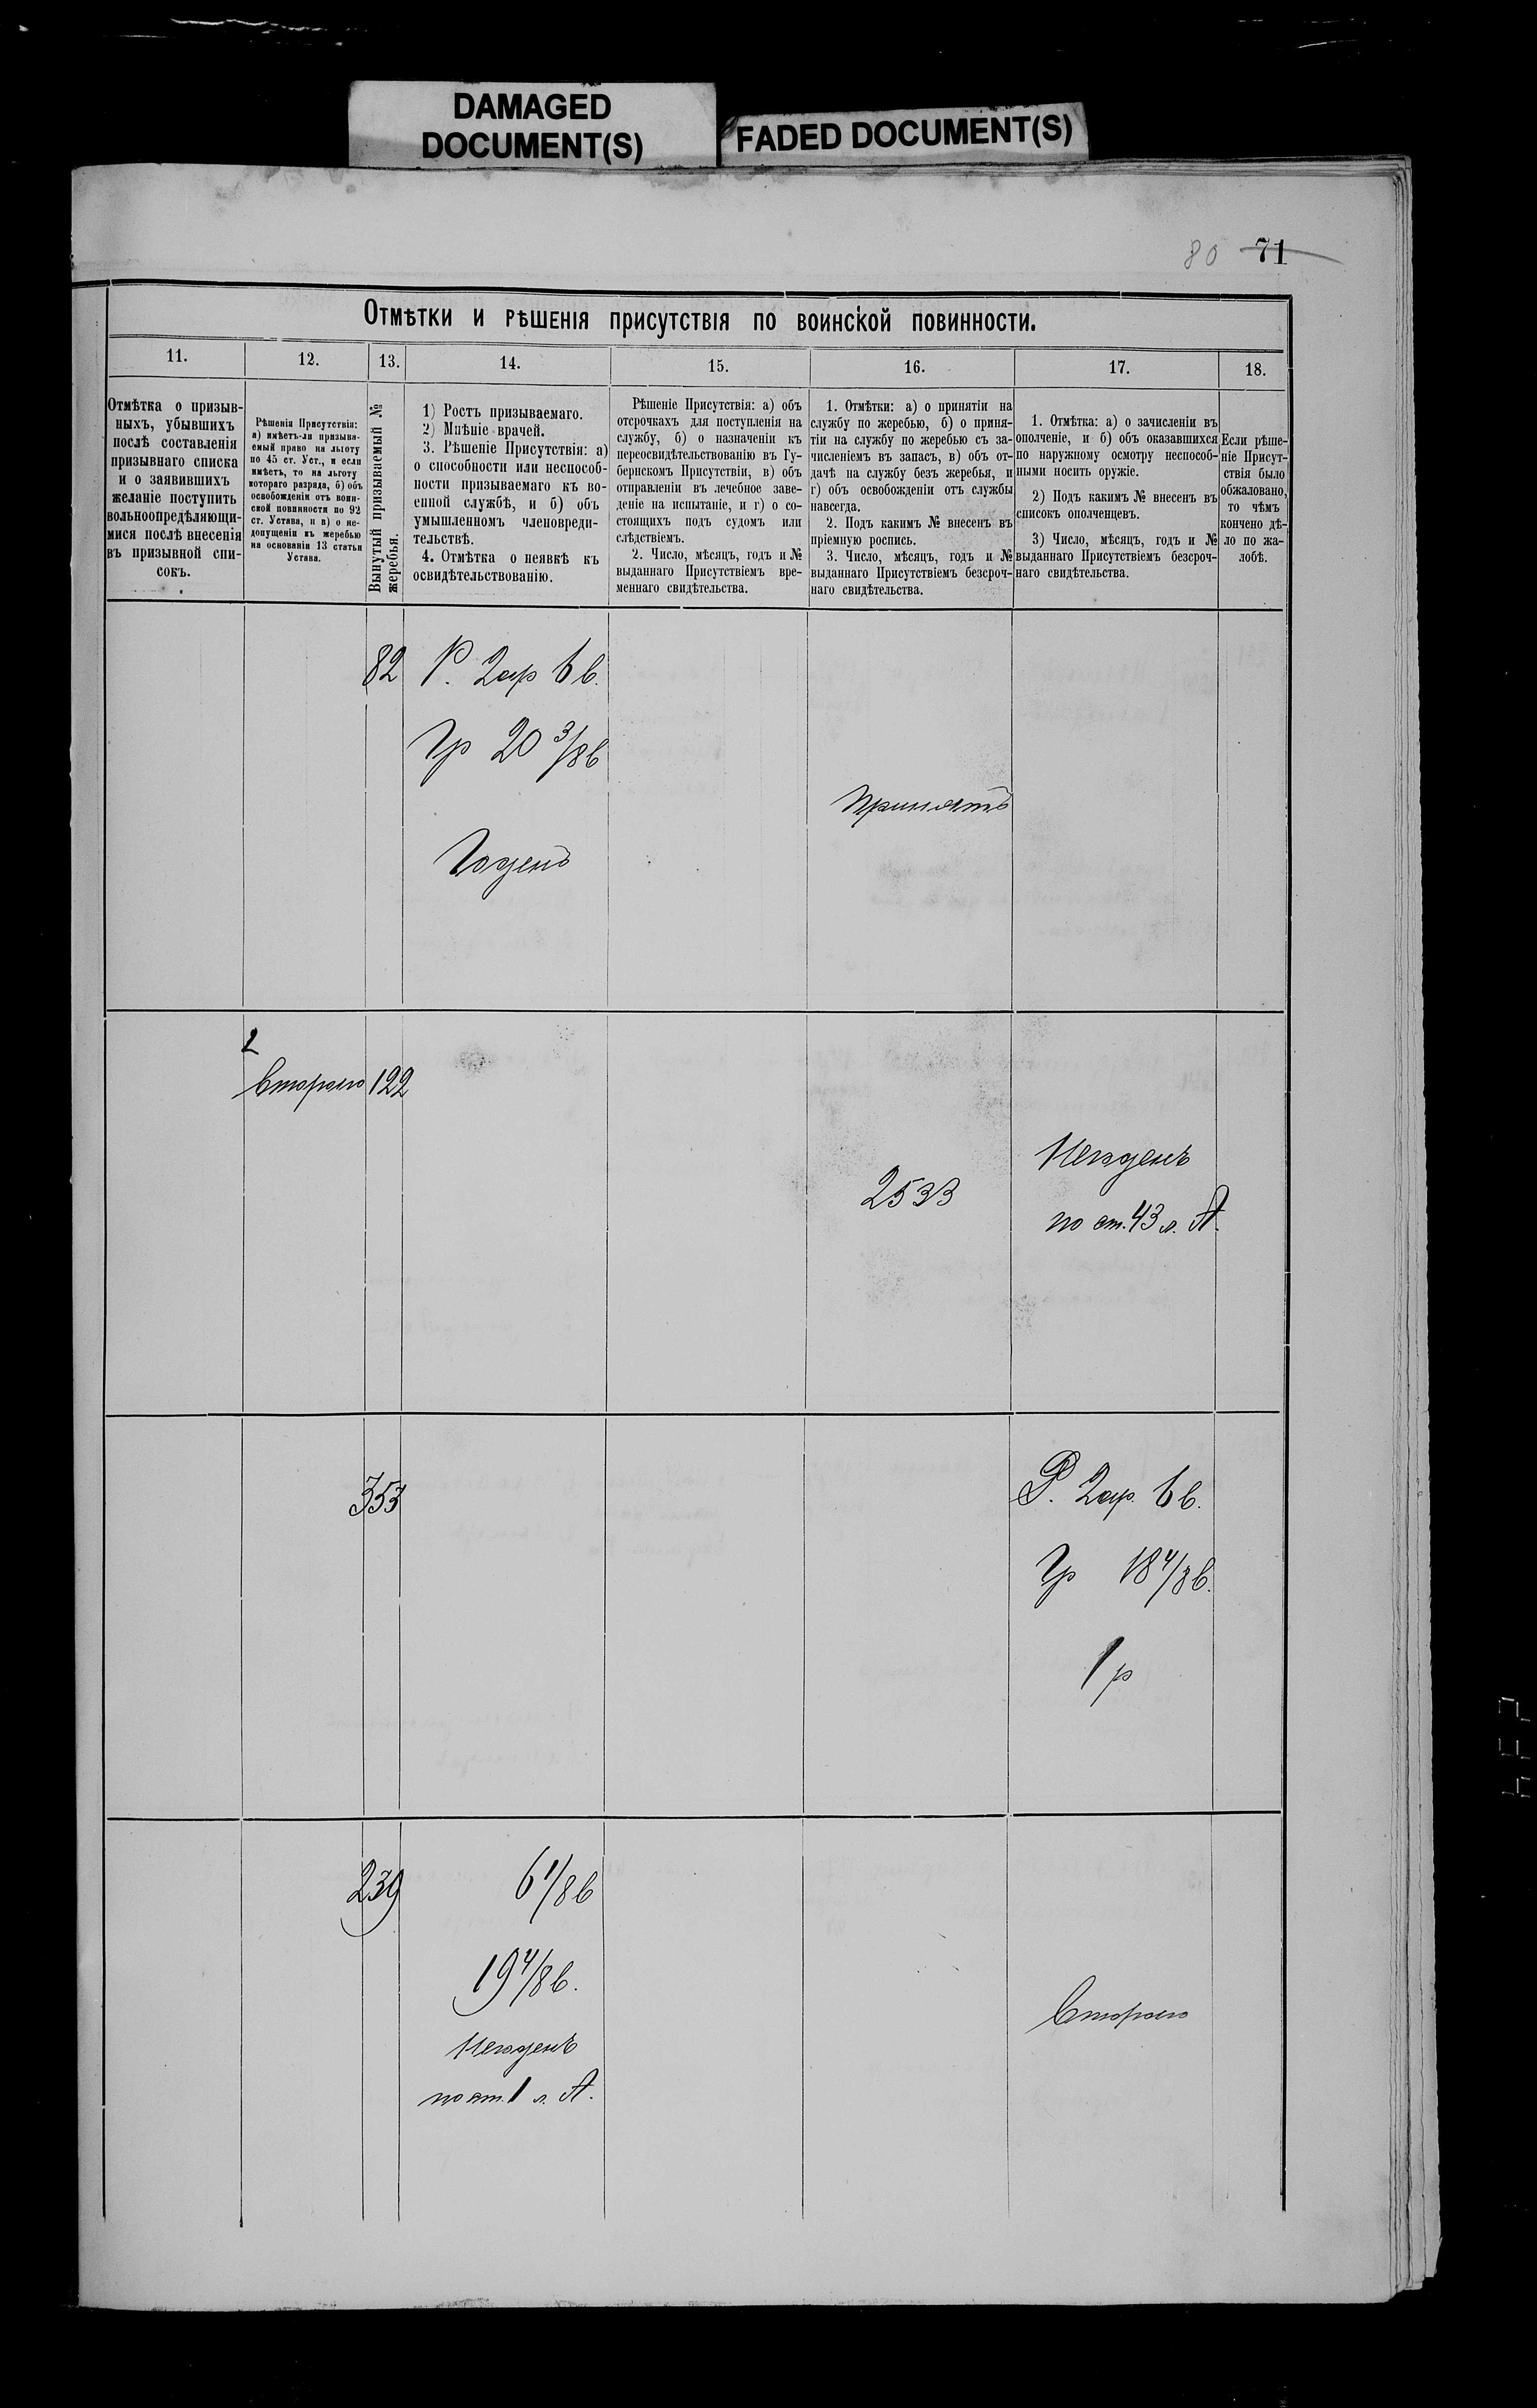 DAMAGED
DOCUMENT(S)
FADED DOCUMENT(S)
80 71
Отмѣтки и рѣшенія присутствія по воинской повинности.
11.
12.
13.
14.
15.
16.
17.
18.
Отмѣтка о призыв-
ныхъ, убывшихъ
послѣ составленія
призывнаго списка
и о заявившихъ
желаніе поступить
вольноопредѣляющи-
мися послѣ внесенія
въ призывной спи-
сокъ.
Рѣшенія Присутствія:
а) имѣетъ-ли призыва-
емый право на льготу
по 45 ст. Уст., и если
имѣетъ, то на льготу
котораго разряда, б) объ
освобожденіи отъ воин-
ской повинности по 92
ст. Устава, и в) о не-
допущеніи къ жеребью
на основаніи 13 статьи
Устава.
Вынутый призываемый №
жеребья.
1) Ростъ призываемаго.
2) Мнѣніе врачей.
3. Рѣшеніе Присутствія: а)
о способности или неспособ-
ности призываемаго къ во-
енной службѣ, и б) объ
умышленномъ членовреди-
тельствѣ.
4. Отмѣтка о неявкѣ къ
освидѣтельствованію.
Рѣшеніе Присутствія: а) объ
отсрочкахъ для поступленія на
службу, б) о назначеніи къ
переосвидѣтельствованію въ Гу-
бернскомъ Присутствіи, в) объ
отправленіи въ лечебное заве-
деніе на испытаніе, и г) о со-
стоящихъ подъ судомъ или
слѣдствіемъ.
2. Число, мѣсяцъ, годъ и №
выданнаго Присутствіемъ вре-
меннаго свидѣтельства.
1. Отмѣтки: а) о принятіи на
службу по жеребью, б) о приня-
тіи на службу по жеребью съ за-
численіемъ въ запасъ, в) объ от-
дачѣ на службу безъ жеребья, и
г) объ освобожденіи отъ службы
навсегда.
2. Подъ какимъ № внесенъ въ
пріемную роспись.
3. Число, мѣсяцъ, годъ и №
выданнаго Присутствіемъ безсроч-
наго свидѣтельства.
1. Отмѣтка: а) о зачисленіи въ
ополченіе, и б) объ оказавшихся
по наружному осмотру неспособ-
ными носить оружіе.
2) Подъ какимъ № внесенъ въ
списокъ ополченцевъ.
3) Число, мѣсяцъ, годъ и №
выданнаго Присутствіемъ безсроч-
наго свидѣтельства.
Если рѣше-
ніе Присут-
ствія было
обжаловано,
то чѣмъ
кончено дѣ-
ло по жа-
лобѣ.
82 Р. 2ар 6 в.
Гр 20 3/8 в
Годенъ
Принятъ
2
Второго 122
2533
Негоденъ
по ст. 43 л. А.
353
Р. 2ар. 6 в.
Гр 18 4/8 в.
1 р
239
6 1/8 в
19 4/8 в.
Негоденъ
по ст. 1 л. А.
Второго